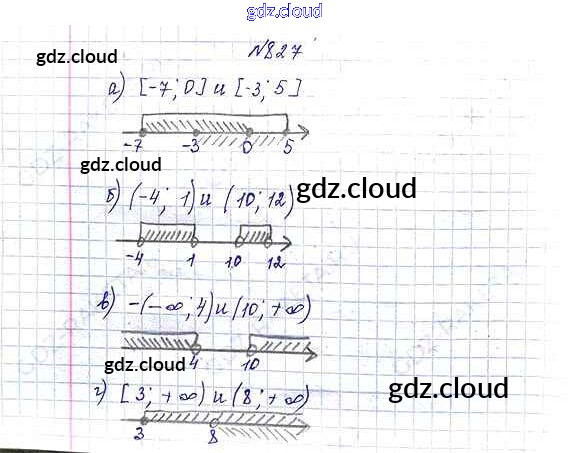 gdz.cloud
№827
gdz.cloud gdz.cloud
а) [-7; 0] и [-3; 5]
-7 -3 0 5
gdz.cloud
б) (-4; 1) и (10; 12)
gdz.cloud
-4 1 10 12
в) -(-∞; 4) и (10; +∞)
4 10
gdz.cloud
г) [3; +∞) и (8; +∞)
gdz.cloud
3 8